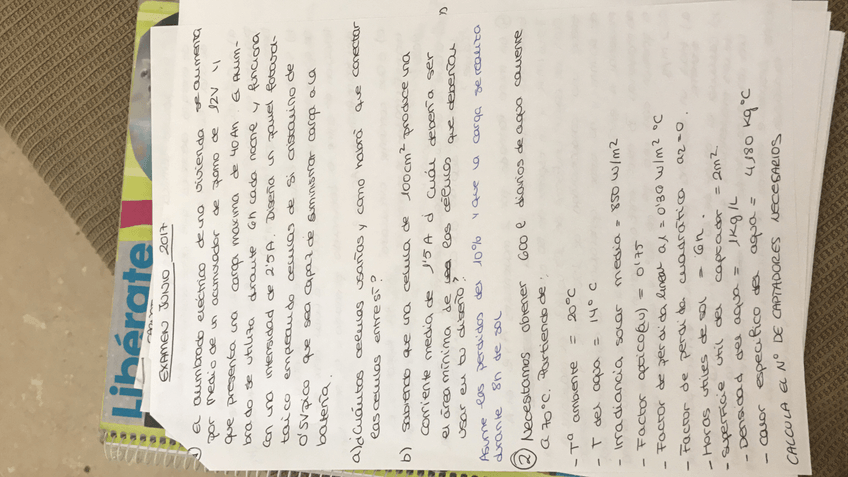 Libérate
EXAMEN JUNIO 2017
1) El alumbrado eléctrico de una vivienda se alimenta
por medio de un acumulador de plomo de 12V y
que presenta una carga máxima de 40Ah. El alum-
brado se utiliza durante 6h cada noche y funciona
con una intensidad de 2'5A. Diseña un panel fotovol-
taico empleando células de Si cristalino de
0'5V pico que sea capaz de suministrar carga a la
batería.
a) ¿Cuántas células usarías y como habrá que conectar
las células entre sí?
b) sabiendo que una célula de 100cm² produce una
corriente media de 1'5A ¿Cuál debería a ser
el área mínima de las células que deberías
usar en tu diseño?
Asume las perdidas del 10% y que la carga se realiza
durante 8h de sol
2) Necesitamos obtener 600 l diarios de agua caliente
a 70°C. Partiendo de:
- Tª ambiente = 20°C
- T del agua = 14°C
- Irradiancia solar media = 850 W/m²
- Factor óptico (a0) = 0'75
- Factor de pérdida lineal a1 = 0'30 W/m² °C
- Factor de perdida cuadrática a2 = 0.
- Horas útiles de sol = 6h.
- Superficie útil del captador = 2m²
- Densidad del agua = 1Kg/L
- Calor específico del agua = 4,180 Kg °C
CALCULA EL Nº DE CAPTADORES NECESARIOS